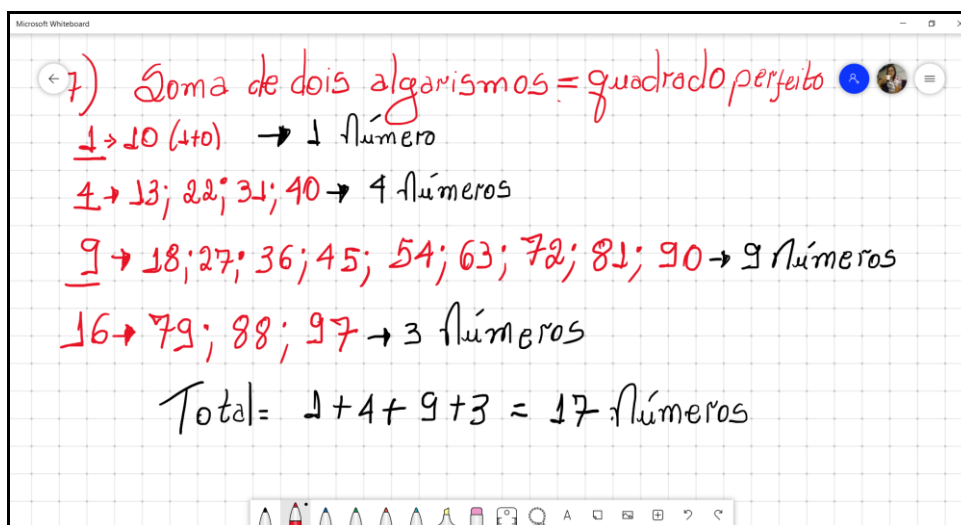 Microsoft Whiteboard
7) Soma de dois algarismos = quadrado perfeito
1 → 10 (1+0) → 1 Número
4 → 13; 22; 31; 40 → 4 Números
9 → 18; 27; 36; 45; 54; 63; 72; 81; 90 → 9 Números
16 → 79; 88; 97 → 3 Números
Total = 1 + 4 + 9 + 3 = 17 Números